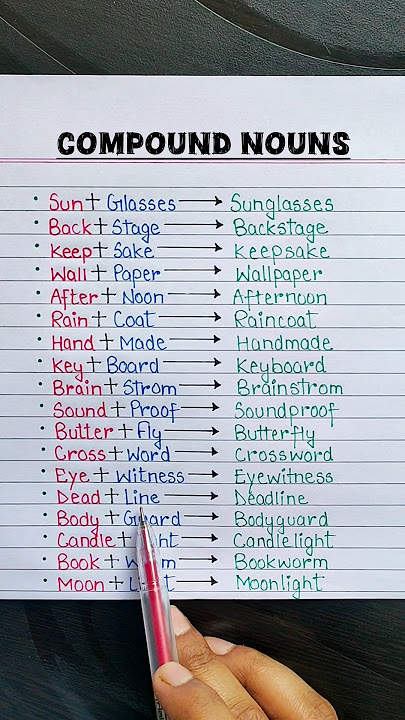 COMPOUND NOUNS
• Sun + Glasses → Sunglasses
• Back + Stage → Backstage
• Keep + Sake → Keepsake
• Wall + Paper → Wallpaper
• After + Noon → Afternoon
• Rain + Coat → Raincoat
• Hand + Made → Handmade
• Key + Board → Keyboard
• Brain + Strom → Brainstrom
• Sound + Proof → Soundproof
• Butter + Fly → Butterfly
• Cross + Word → Crossword
• Eye + Witness → Eyewitness
• Dead + Line → Deadline
• Body + Guard → Bodyguard
• Candle + → Candlelight
• Book + → Bookworm
• Moon + → Moonlight